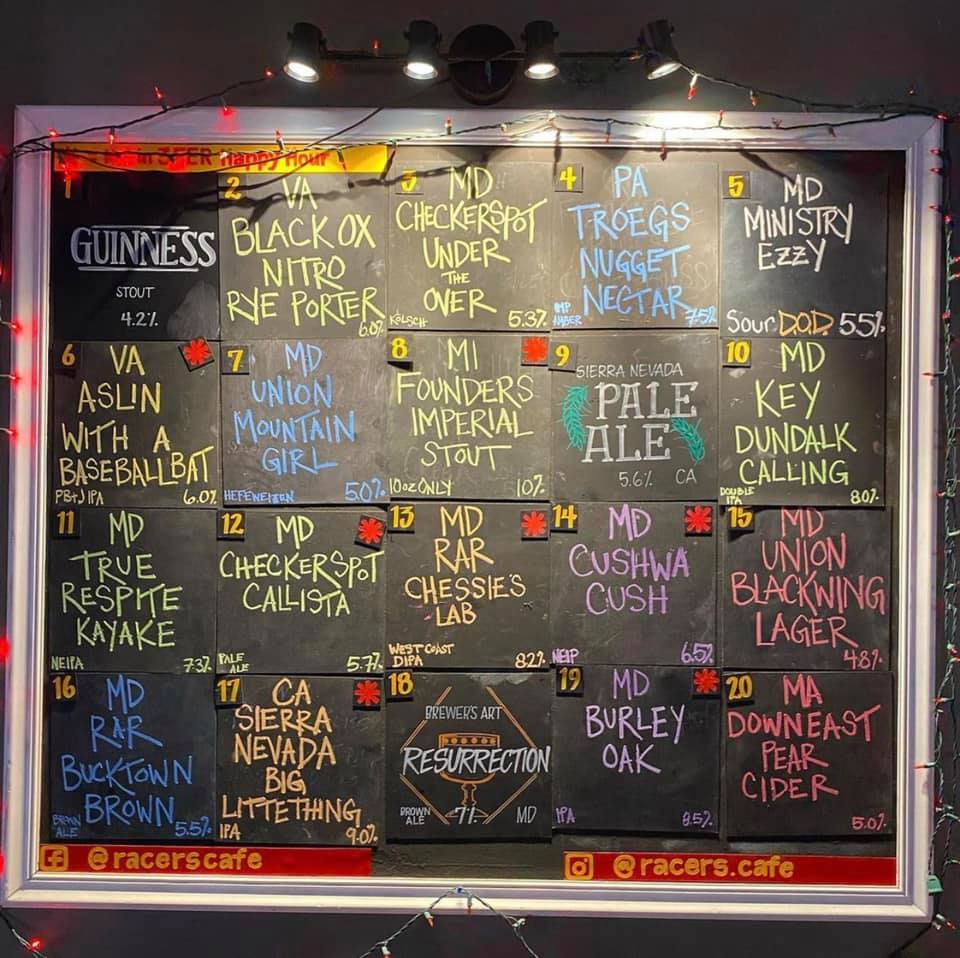 3 FER Happy Hour
1
GUINNESS
STOUT
4.2%
2
VA
BLACK OX
NITRO
RYE PORTER
6.0%
3
MD
CHECKERSPOT
UNDER
THE
OVER
KÖLSCH 5.3%
4
PA
TROEGS
NUGGET
NECTAR
IMP
AMBER 7.5%
5
MD
MINISTRY
EZZY
Sour D.O.D. 5.5%
6
VA
ASLIN
WITH A
BASEBALL BAT
PB+J IPA 6.0%
7
MD
UNION
MOUNTAIN
GIRL
HEFEWEIZEN 5.0%
8
MI
FOUNDERS
IMPERIAL
STOUT
10oz ONLY 10%
9
SIERRA NEVADA
PALE
ALE
5.6% CA
10
MD
KEY
DUNDALK
CALLING
DOUBLE
IPA 8.0%
11
MD
TRUE
RESPITE
KAYAKE
NEIPA 7.3%
12
MD
CHECKERSPOT
CALLISTA
PALE
ALE 5.7%
13
MD
RAR
CHESSIE'S
LAB
WEST COAST
DIPA 8.2%
14
MD
CUSHWA
CUSH
NEIP 6.5%
15
MD
UNION
BLACKWING
LAGER
4.8%
16
MD
RAR
BUCKTOWN
BROWN
BROWN
ALE 5.5%
17
CA
SIERRA
NEVADA
BIG
LITTETHING
IPA 9.0%
18
BREWER'S ART
RESURRECTION
BROWN
ALE 7% MD
19
MD
BURLEY
OAK
IPA 8.5%
20
MA
DOWNEAST
PEAR
CIDER
5.0%
@racerscafe
@racers.cafe